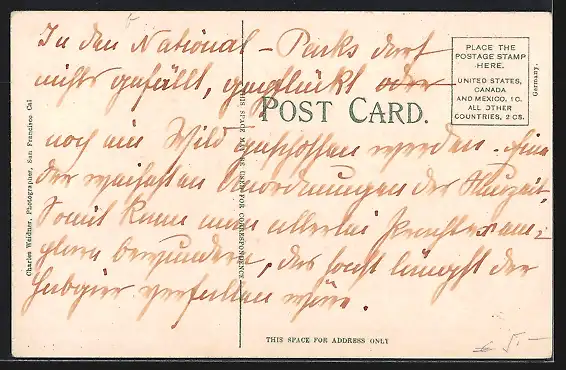 In den National-Parks darf
nichts gefällt, gepflückt oder
noch ein Wild geschossen werden. Eine
der weisesten Verordnungen der Neuzeit,
Somit kann man allerlei Prachtexem-
plare bewundern, das sonst längst der
Habgier verfallen wäre.
POST CARD.
PLACE THE
POSTAGE STAMP
HERE.
UNITED STATES,
CANADA
AND MEXICO, 1C.
ALL OTHER
COUNTRIES, 2 CS.
Germany.
Charles Weidner, Photographer, San Francisco Cal
THIS SPACE MAY BE USED FOR CORRESPONDENCE
THIS SPACE FOR ADDRESS ONLY